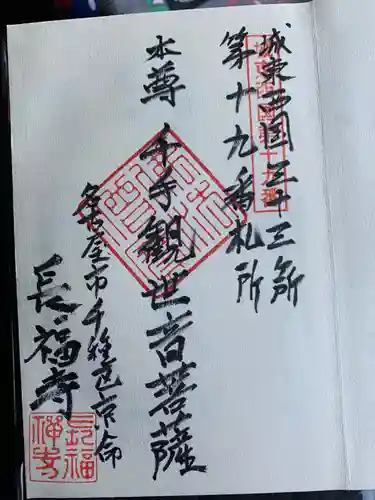 城東西国三十三ヶ所
第十九番札所
本尊 千手観世音菩薩
名古屋市千種区京命
長福寺
長福禅寺